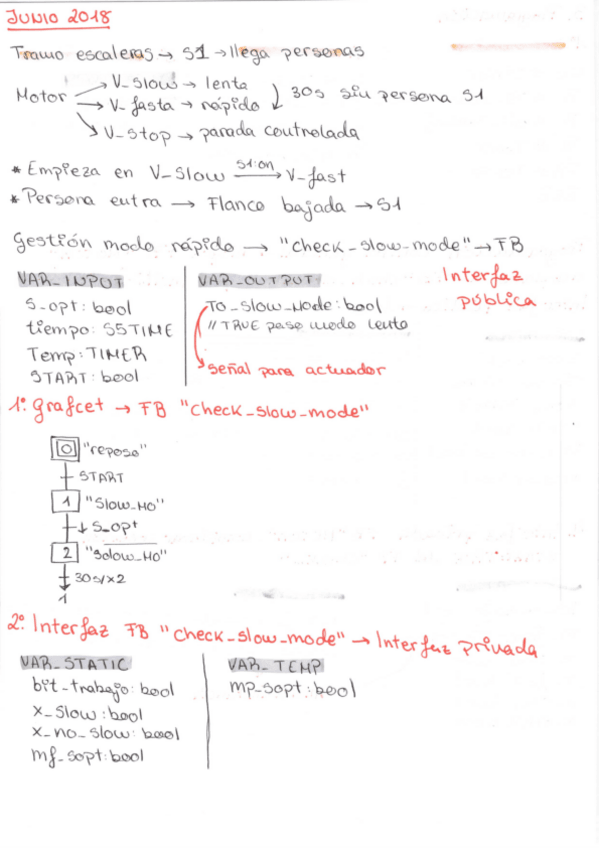 JUNIO 2018
Tramo escaleras → S1 → llega personas
Motor → V_slow → lenta
→ V_fasta → rápido
30s sin persona S1
→ V_stop → parada controlada
* Empieza en V_slow S1:on → V_fast
* Persona entra → Flanco bajada → S1
Gestión modo rápido → "check_slow_mode" → FB
VAR_INPUT
S_opt: bool
tiempo: S5TIME
Temp: TIMER
START: bool
VAR_OUTPUT
TO_slow_Mode: bool
// TRUE paso modo lento
señal para actuador
Interfaz
pública
1º: Grafcet → FB "check_slow_mode"
0 "reposo"
START
1 "Slow_MO"
↓ S_opt
2 "Solow_MO"
30s/x2
1
2º Interfaz FB "check_slow_mode" → Interfaz privada
VAR_STATIC
bit_trabajo: bool
x_slow: bool
x_no_slow: bool
mf_sopt: bool
VAR_TEMP
mp_sopt: bool